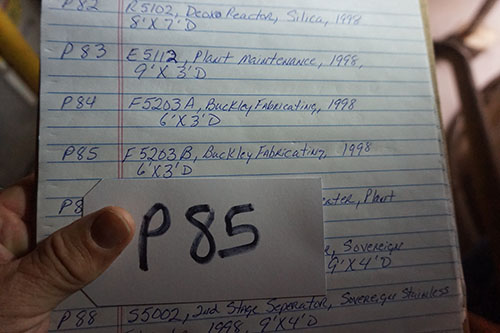 P82 R5102, Deoxo Reactor, Silica, 1998
8'X7'D
P83 E5112, Plant Maintenance, 1998,
9'X3'D
P84 F5203A, Buckley Fabricating, 1998
6'X3'D
P85 F5203B, Buckley Fabricating, 1998
6'X3'D
P8 Plant
P85
Sovereign
9'X4'D
P88 S5002, 2nd Stage Seperator, Sovereign Stainless
1998, 9'X4'D